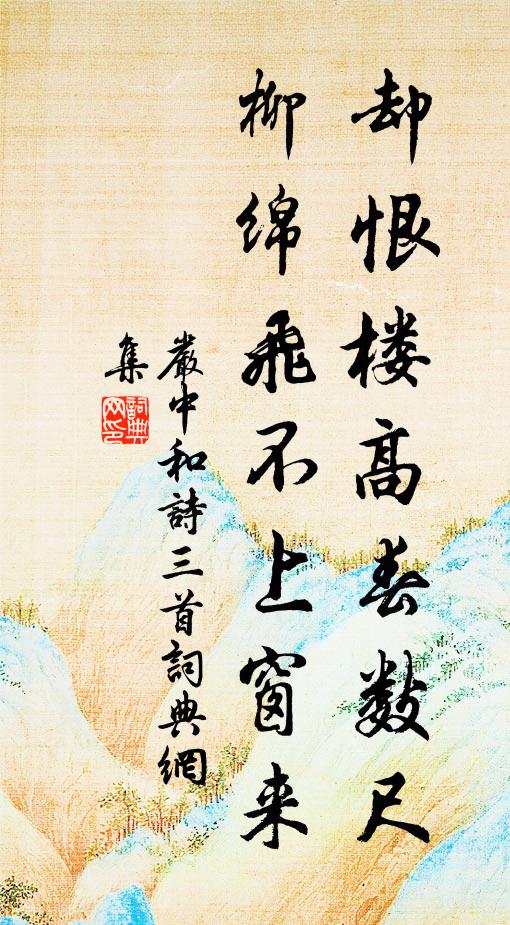 却恨楼高春数尺
柳绵飛不上窗来
嚴中和詩三首詞典網
集
詞典
网印